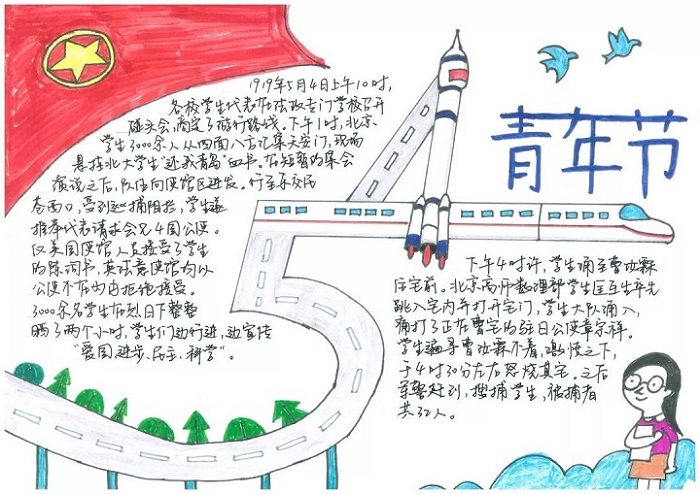 青年节
1919年5月4日上午10时,
各校学生代表在法政专门学校召开
碰头会,商定了游行路线。下午1时,北京
学生3000余人从四面八方汇集天安门,现场
悬挂北大学生"还我青岛"血书。在短暂的集会
演说之后,队伍向使馆区进发。行至东交民
巷西口,受到巡捕阻拦,学生遂
推举代表请求会见4国公使。
仅美国使馆人员接受了学生
的陈词书,英法意使馆均以
公使不在为由拒绝接受。
3000余名学生在烈日下整整
晒了两个小时,学生们边行进,边宣传
"爱国、进步、民主、科学"。
下午4时许,学生涌至曹汝霖
住宅前。北京高师数理部学生匡互生率先
跳入宅内并打开宅门,学生大队涌入,
痛打了正在曹宅的驻日公使章宗祥。
学生遍寻曹汝霖不着,激愤之下,
于4时30分左右怒烧其宅。之后
军警赶到,搜捕学生,被捕者
共32人。